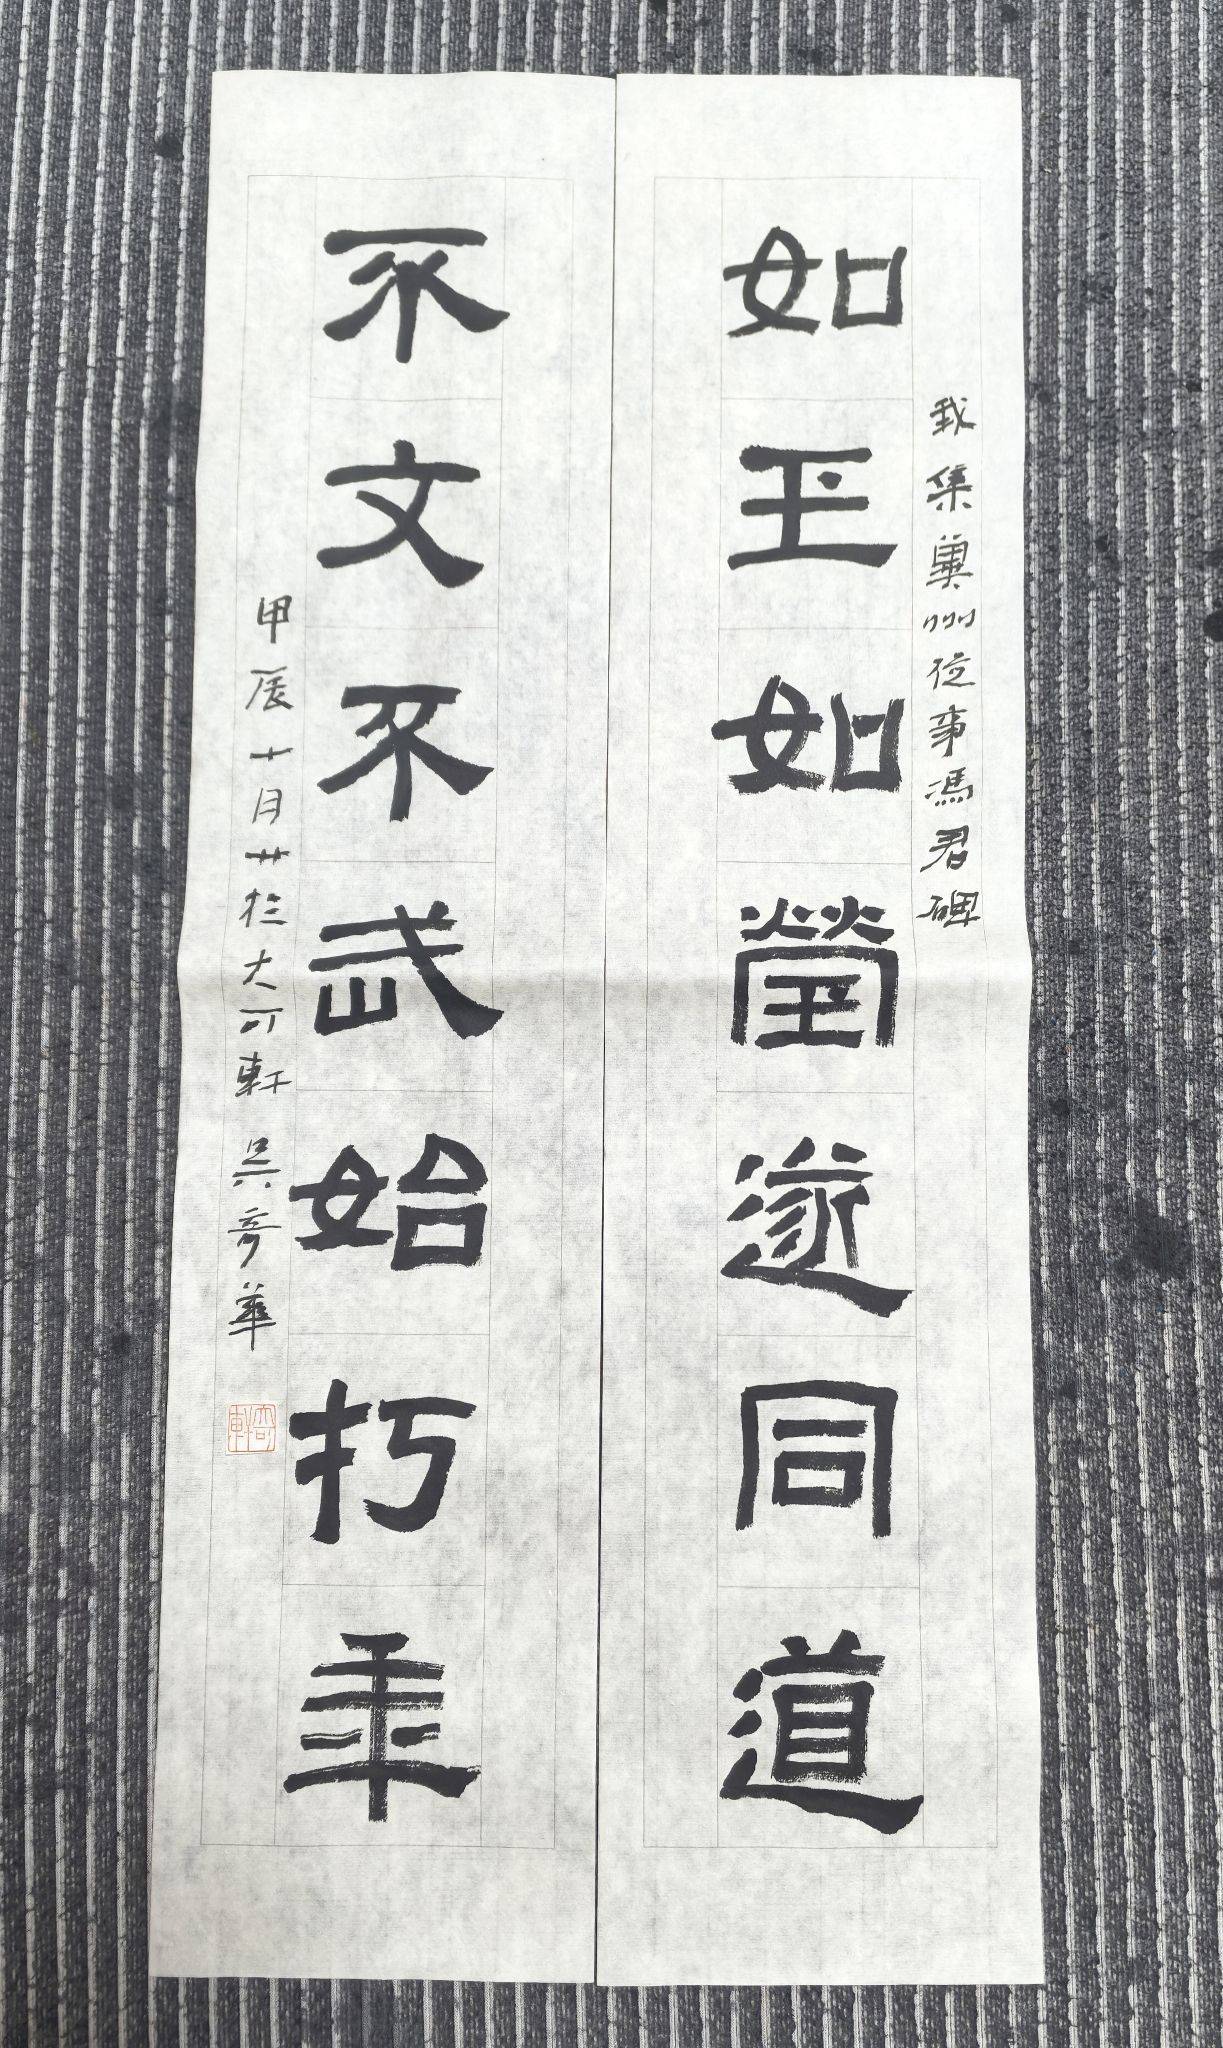 如玉如瑩遂同道
我集冀州從事馮君碑
不文不武始朽年
甲辰十月廿於大可軒 吳彥華